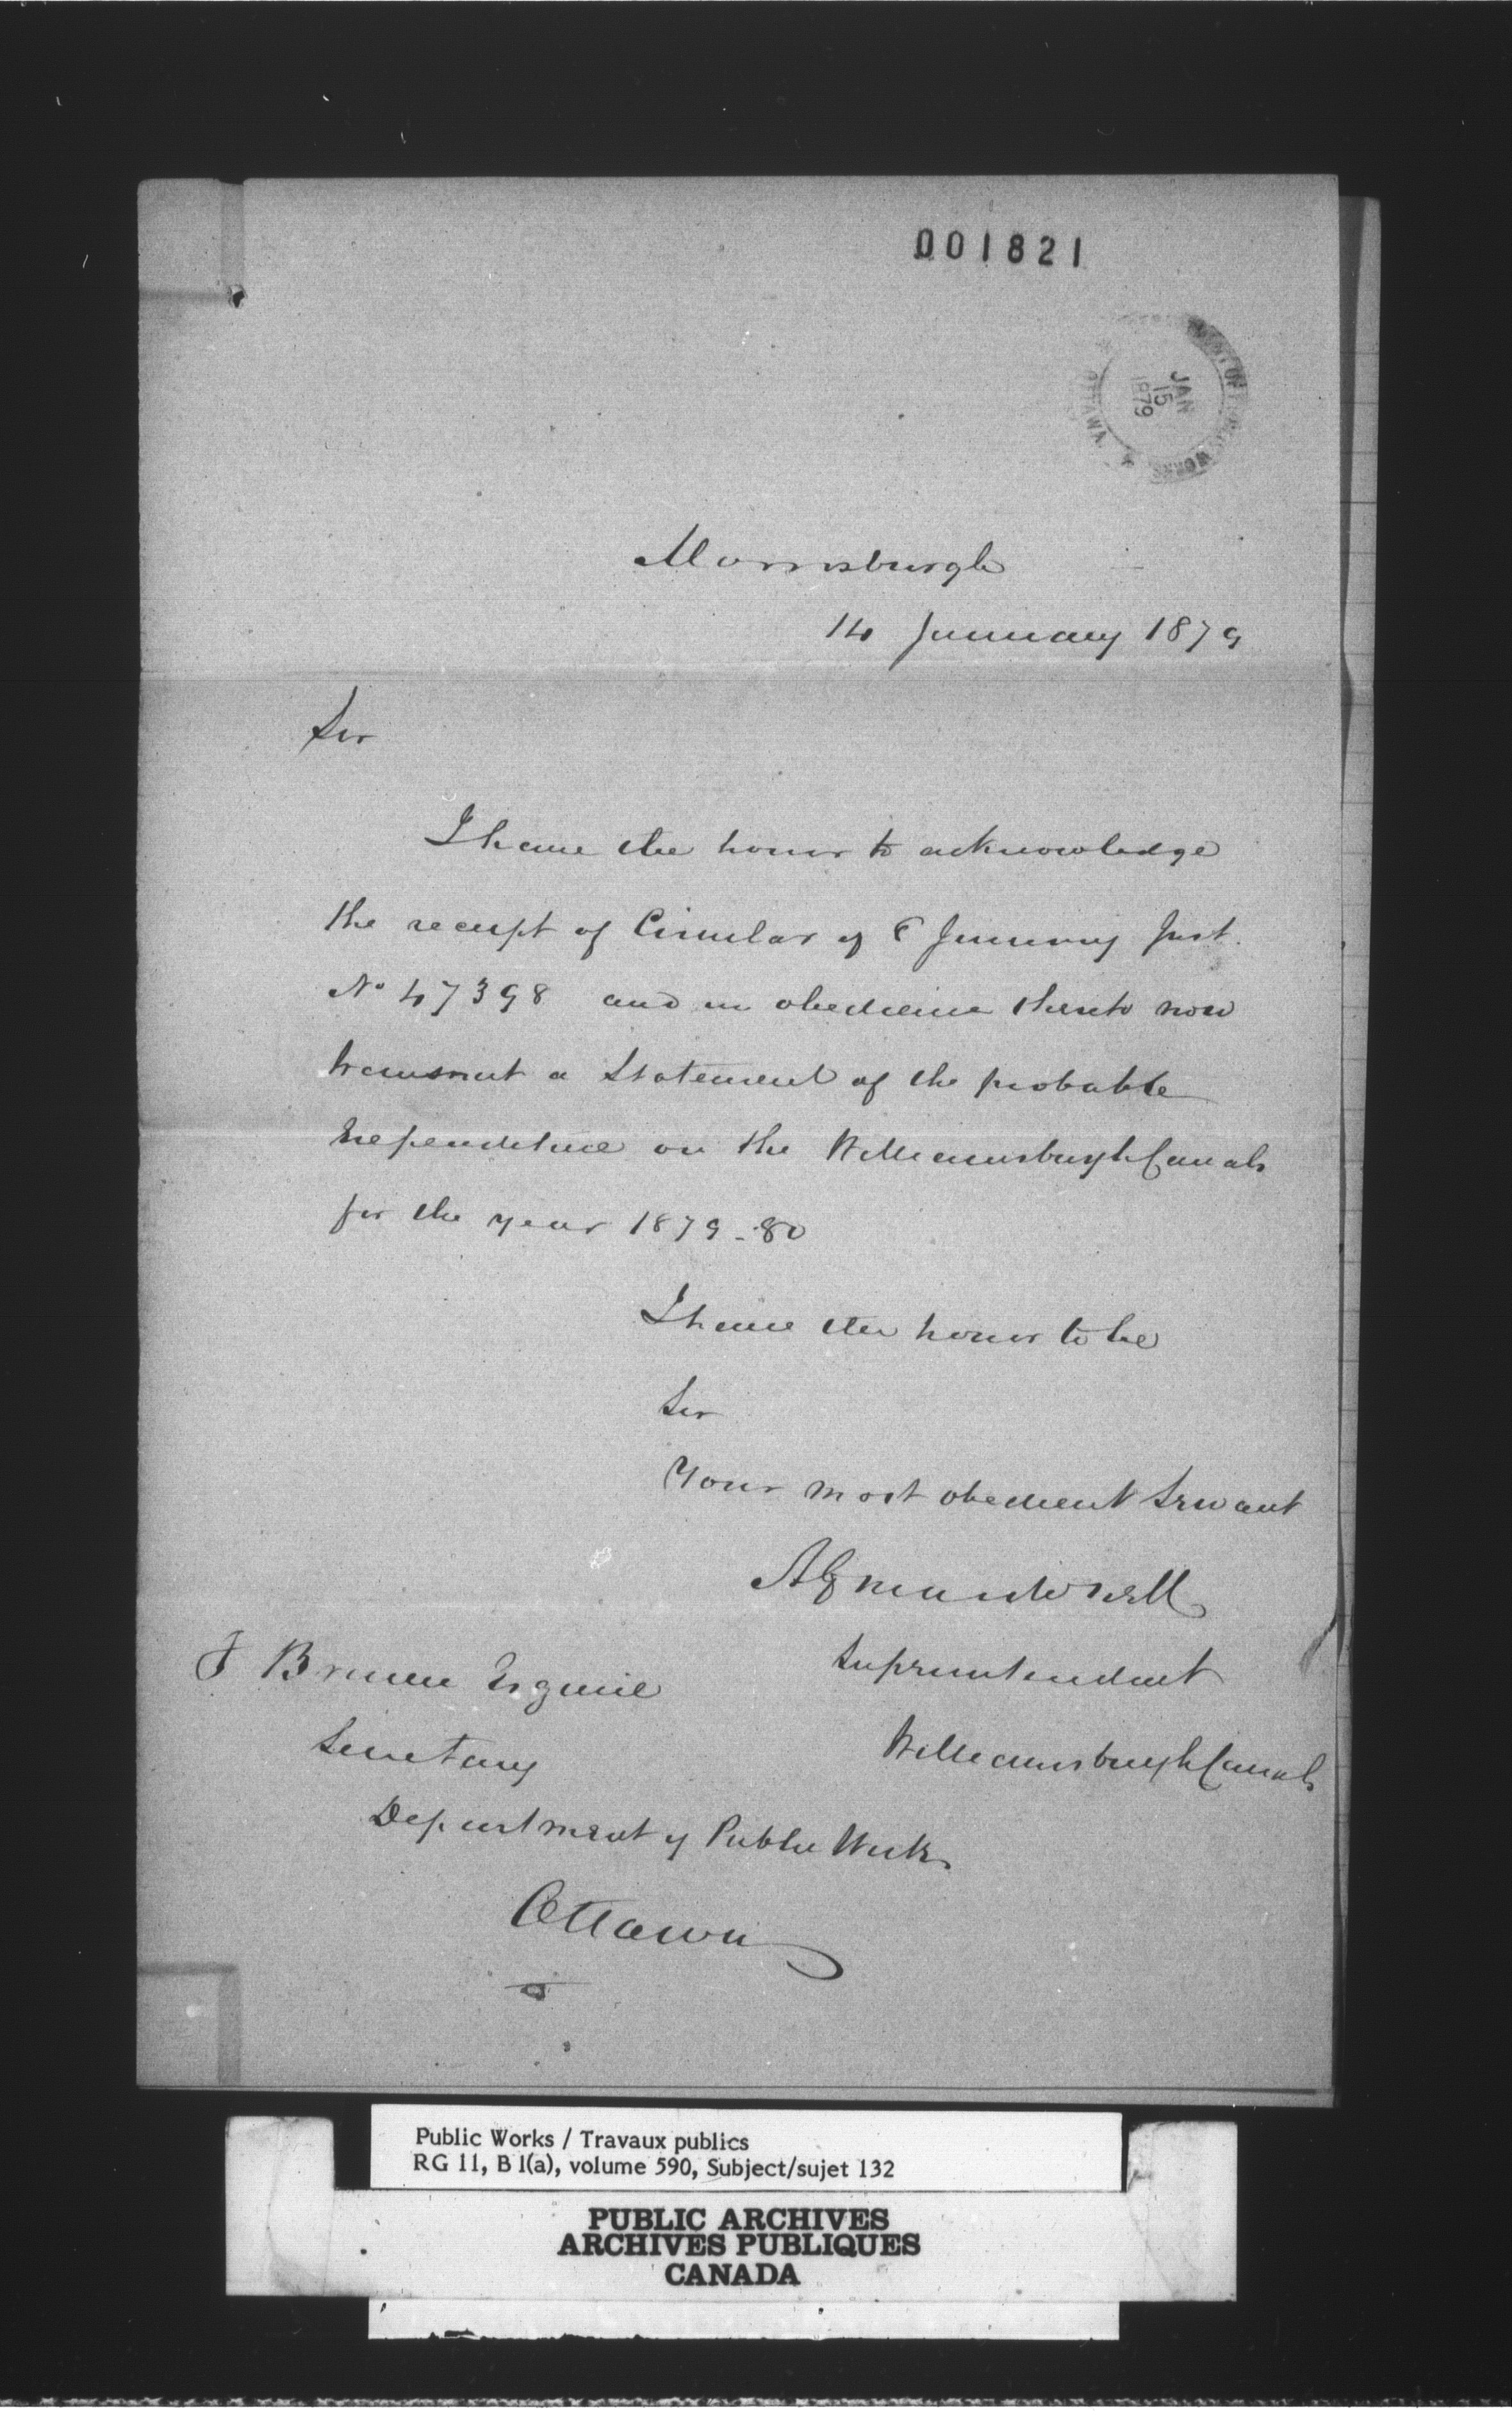 001821
DEPARTMENT OF PUBLIC WORKS
JAN
15
1879
OTTAWA
Morrisburgh
14 January 1879
Sir
I have the honor to acknowledge
the receipt of Circular of 8 January Inst.
No 47398 and in obedience thereto now
transmit a Statement of the probable
Expenditure on the Williamsburgh Canals
for the year 1879-80
I have the honor to be
Sir
Your most obedient Servant
Superintendent
Williamsburgh Canals
F Braun Esquire
Secretary
Department of Public Works
Ottawa
Public Works / Travaux publics
RG 11, B 1(a), volume 590, Subject/sujet 132
PUBLIC ARCHIVES
ARCHIVES PUBLIQUES
CANADA